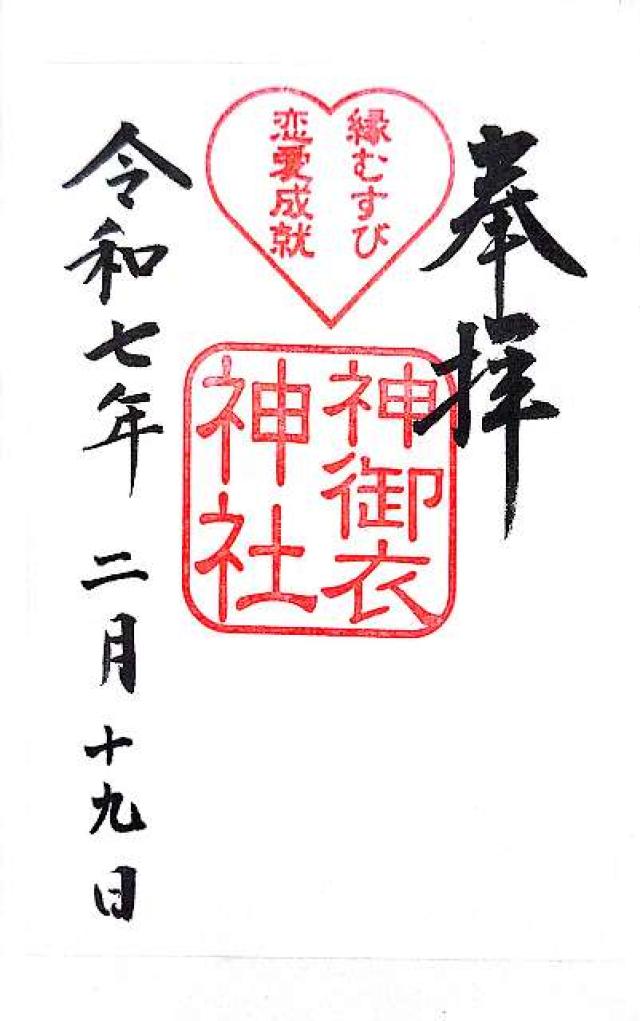 奉拝
縁むすび
恋愛成就
神御衣
神社
令和七年 二月十九日